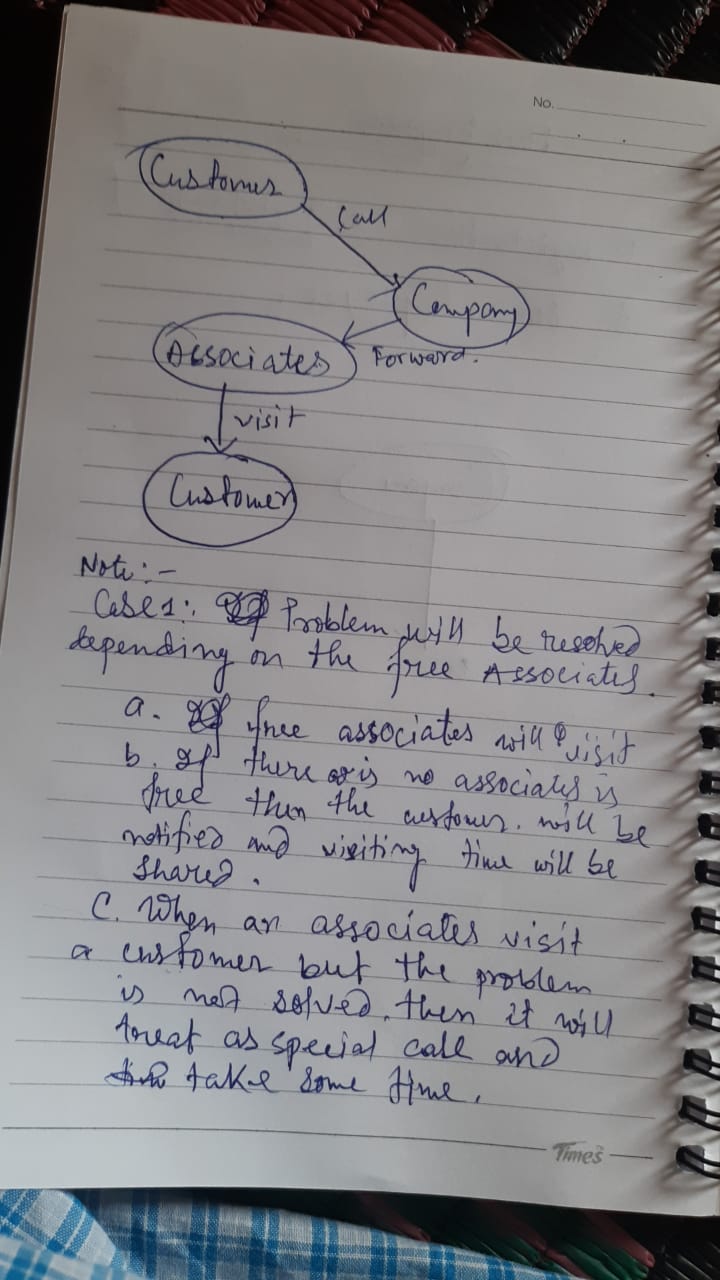 No.
Customer
Call
Company
Associates
Forward.
visit
Customer
Note:-
Case1:. Problem will be resolved
depending on the free Associates.
a. free associates will visit
b. If there is no associates is
free then the customer. will be
notified and visiting time will be
Shared.
C. When an associates visit
a customer but the problem
is not solved, then it will
treat as special call and
take some time.
Times